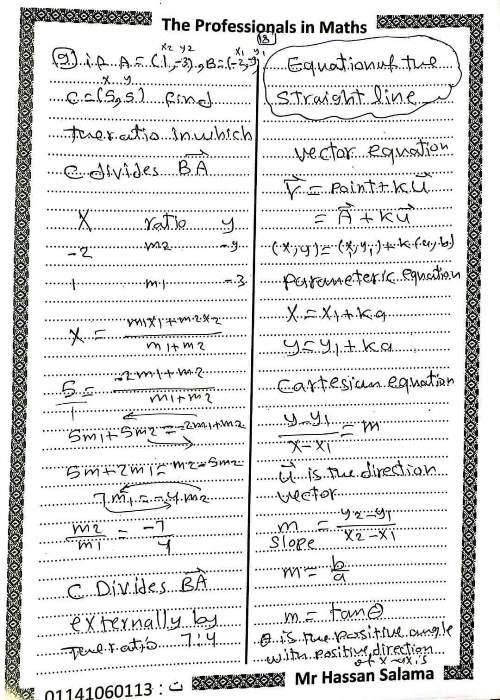 The Professionals in Maths
13
x2 y2 x1 y1
(9) if A=(1,-3), B=(-2,-9)
x y
C=(5,5) find
the ratio in which
C divides BA
X ratio y
-2 m2 -9
1 m1 -3
X = m1x1+m2x2
m1+m2
5 = -2m1+m2
1 m1+m2
5m1+5m2=-2m1+m2
5m+2m1=m2-5m2
7m1=-4m2
m2 = -7
m1 4
C Divides BA
externally by
the ratio 7:4
Equation of the
straight line
vector equation
r = point + K u
= A + K u
(x,y)=(x,y,)+k(a,b)
Parameteric equation
X=x1+ka
y=y1+ka
Cartesian equation
y-y1 = m
x-x1
u is the direction
vector
m = y2-y1
slope x2-x1
m = b
a
m = tanθ
θ is the positive angle
with positive direction
of x-axis
Mr Hassan Salama
01141060113 : ت